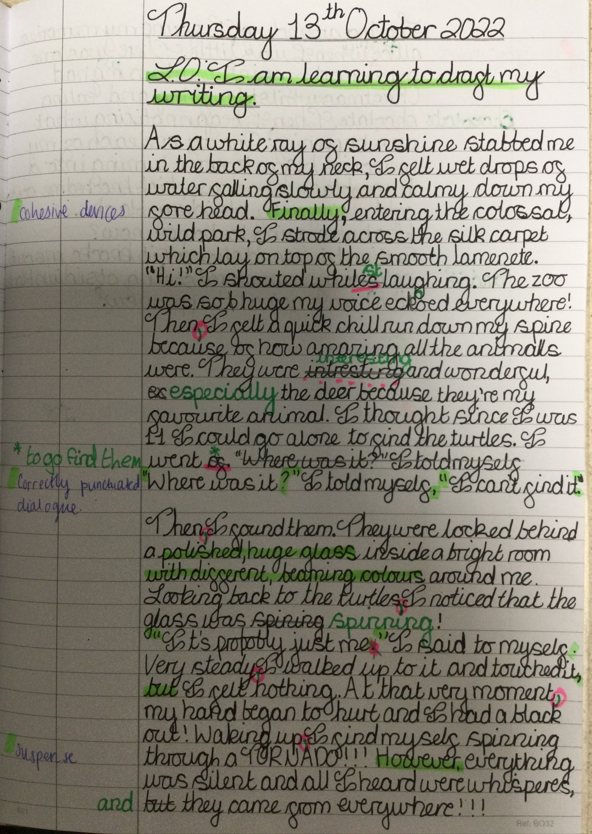 Thursday 13th October 2022
L.O: I am learning to draft my
writing.
As a white ray of sunshine stabbed me
in the back of my neck, I felt wet drops of
water falling slowly and calmy down my
cohesive devices
sore head. Finally, entering the colossal,
wild park, I strode across the silk carpet
which lay on top of the smooth lamenete.
"Hi!" I shouted whilest laughing. The zoo
was so huge my voice echoed everywhere!
Then, I felt a quick chill run down my spine
because of how amazing all the animals
interesting
were. They were intresting and wonderful,
es especially the deer because they're my
favourite animal. I thought since I was
11 I could go alone to find the turtles. I
* to go find them
went * "Where was it?" I told myself
Correctly punctuated dialogue.
"Where was it?" I told myself, "I can't find it."
Then, I found them. They were locked behind
a polished, huge glass inside a bright room
with different, beaming colours around me.
Looking back to the turtles, I noticed that the
glass was spining spinning!
"It's probably just me," I said to myself.
Very steady, I walked up to it and touched it,
but I felt nothing. At that very moment,
my hand began to hurt and I had a black
out! Waking up, I find myself spinning
suspense
through a TORNADO!!! However, everything
was silent and all I heard were whisperes,
and but they came from everywhere!!!
Ref: BO32